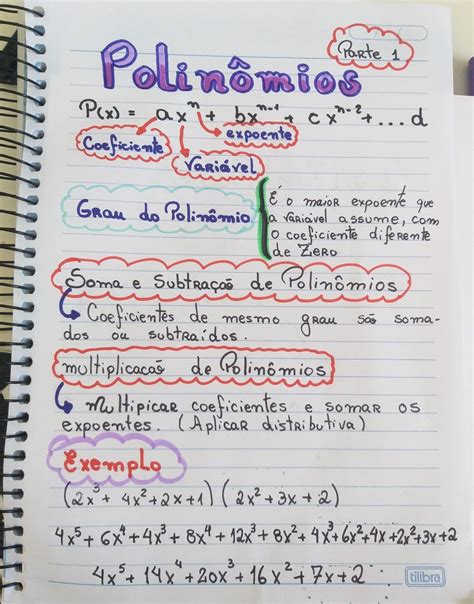 Parte 1
Polinômios
P(x) = ax^n + bx^n-1 + cx^n-2 + ... d
expoente
Coeficiente
Variável
Grau do Polinômio
É o maior expoente que
a variável assume, com
o coeficiente diferente
de Zero
Soma e Subtração de Polinômios
Coeficientes de mesmo grau são soma-
dos ou subtraídos.
multiplicação de Polinômios
Multipicar coeficientes e somar os
expoentes. (Aplicar distributiva)
Exemplo
(2x³ + 4x² + 2x + 1) (2x² + 3x + 2)
4x⁵ + 6x⁴ + 4x³ + 8x⁴ + 12x³ + 8x² + 4x³ + 6x² + 4x + 2x² + 3x + 2
4x⁵ + 14x⁴ + 20x³ + 16x² + 7x + 2
tilibra